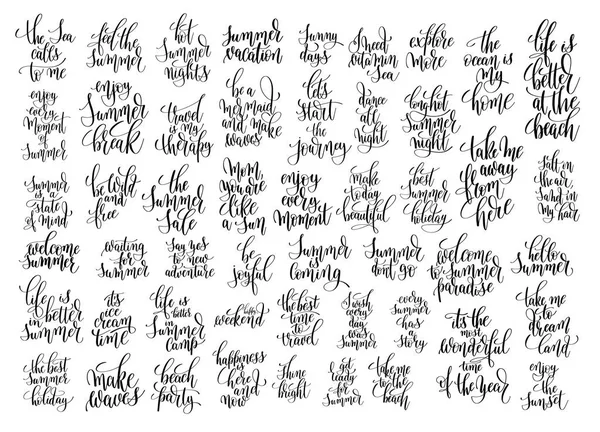 the Sea
calls
to me
feel the
Summer
hot
Summer
nights
Summer
vacation
Sunny
days
I need
vitamin
Sea
explore
more
the
ocean is
my
home
life is
better
at the
beach
enjoy
every
Moment
of
Summer
enjoy
Summer
break
travel
is my
therapy
be a
mermaid
and make
waves
let's
start
the
journey
dance
all
night
long hot
Summer
night
take me
away
from
here
Salt in
the air
Sand in
my hair
Summer
is a
state
of mind
be wild
and
free
the
Summer
Sale
Mom,
you are
like
a Sun
enjoy
every
Moment
make
today
beautiful
best
Summer
holiday
welcome
summer
waiting
for
Summer
Say yes
to new
adventure
be
joyful
Summer
is
coming
Summer
don't go
welcome
to summer
paradise
hello
Summer
life is
better
in
Summer
it's
ice
cream
time
life is
better
in
Summer
camp
hello
weekend
the best
time
to
travel
I wish
every
day
was
Summer
every
Summer
has
a
story
it's the
most
wonderful
time
of the year
take me
to
dream
land
the best
Summer
holiday
make
waves
beach
party
happiness
is
here
and
now
Shine
bright
I get
ready
for
Summer
take me
to the
beach
enjoy
the
Sunset